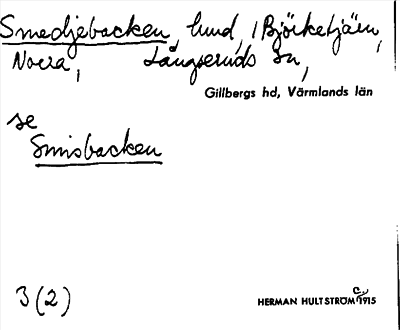 Smedjebacken, lund, i Björketjärn,
Norra, Långseruds sn,
Gillbergs hd, Värmlands län
se
Smisbacken
3 (2)
HERMAN HULTSTRÖM c. 1915